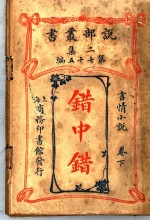 說部叢書
二集
第七十五編
言情小說
卷下
錯中錯
上海
商務印書館發行